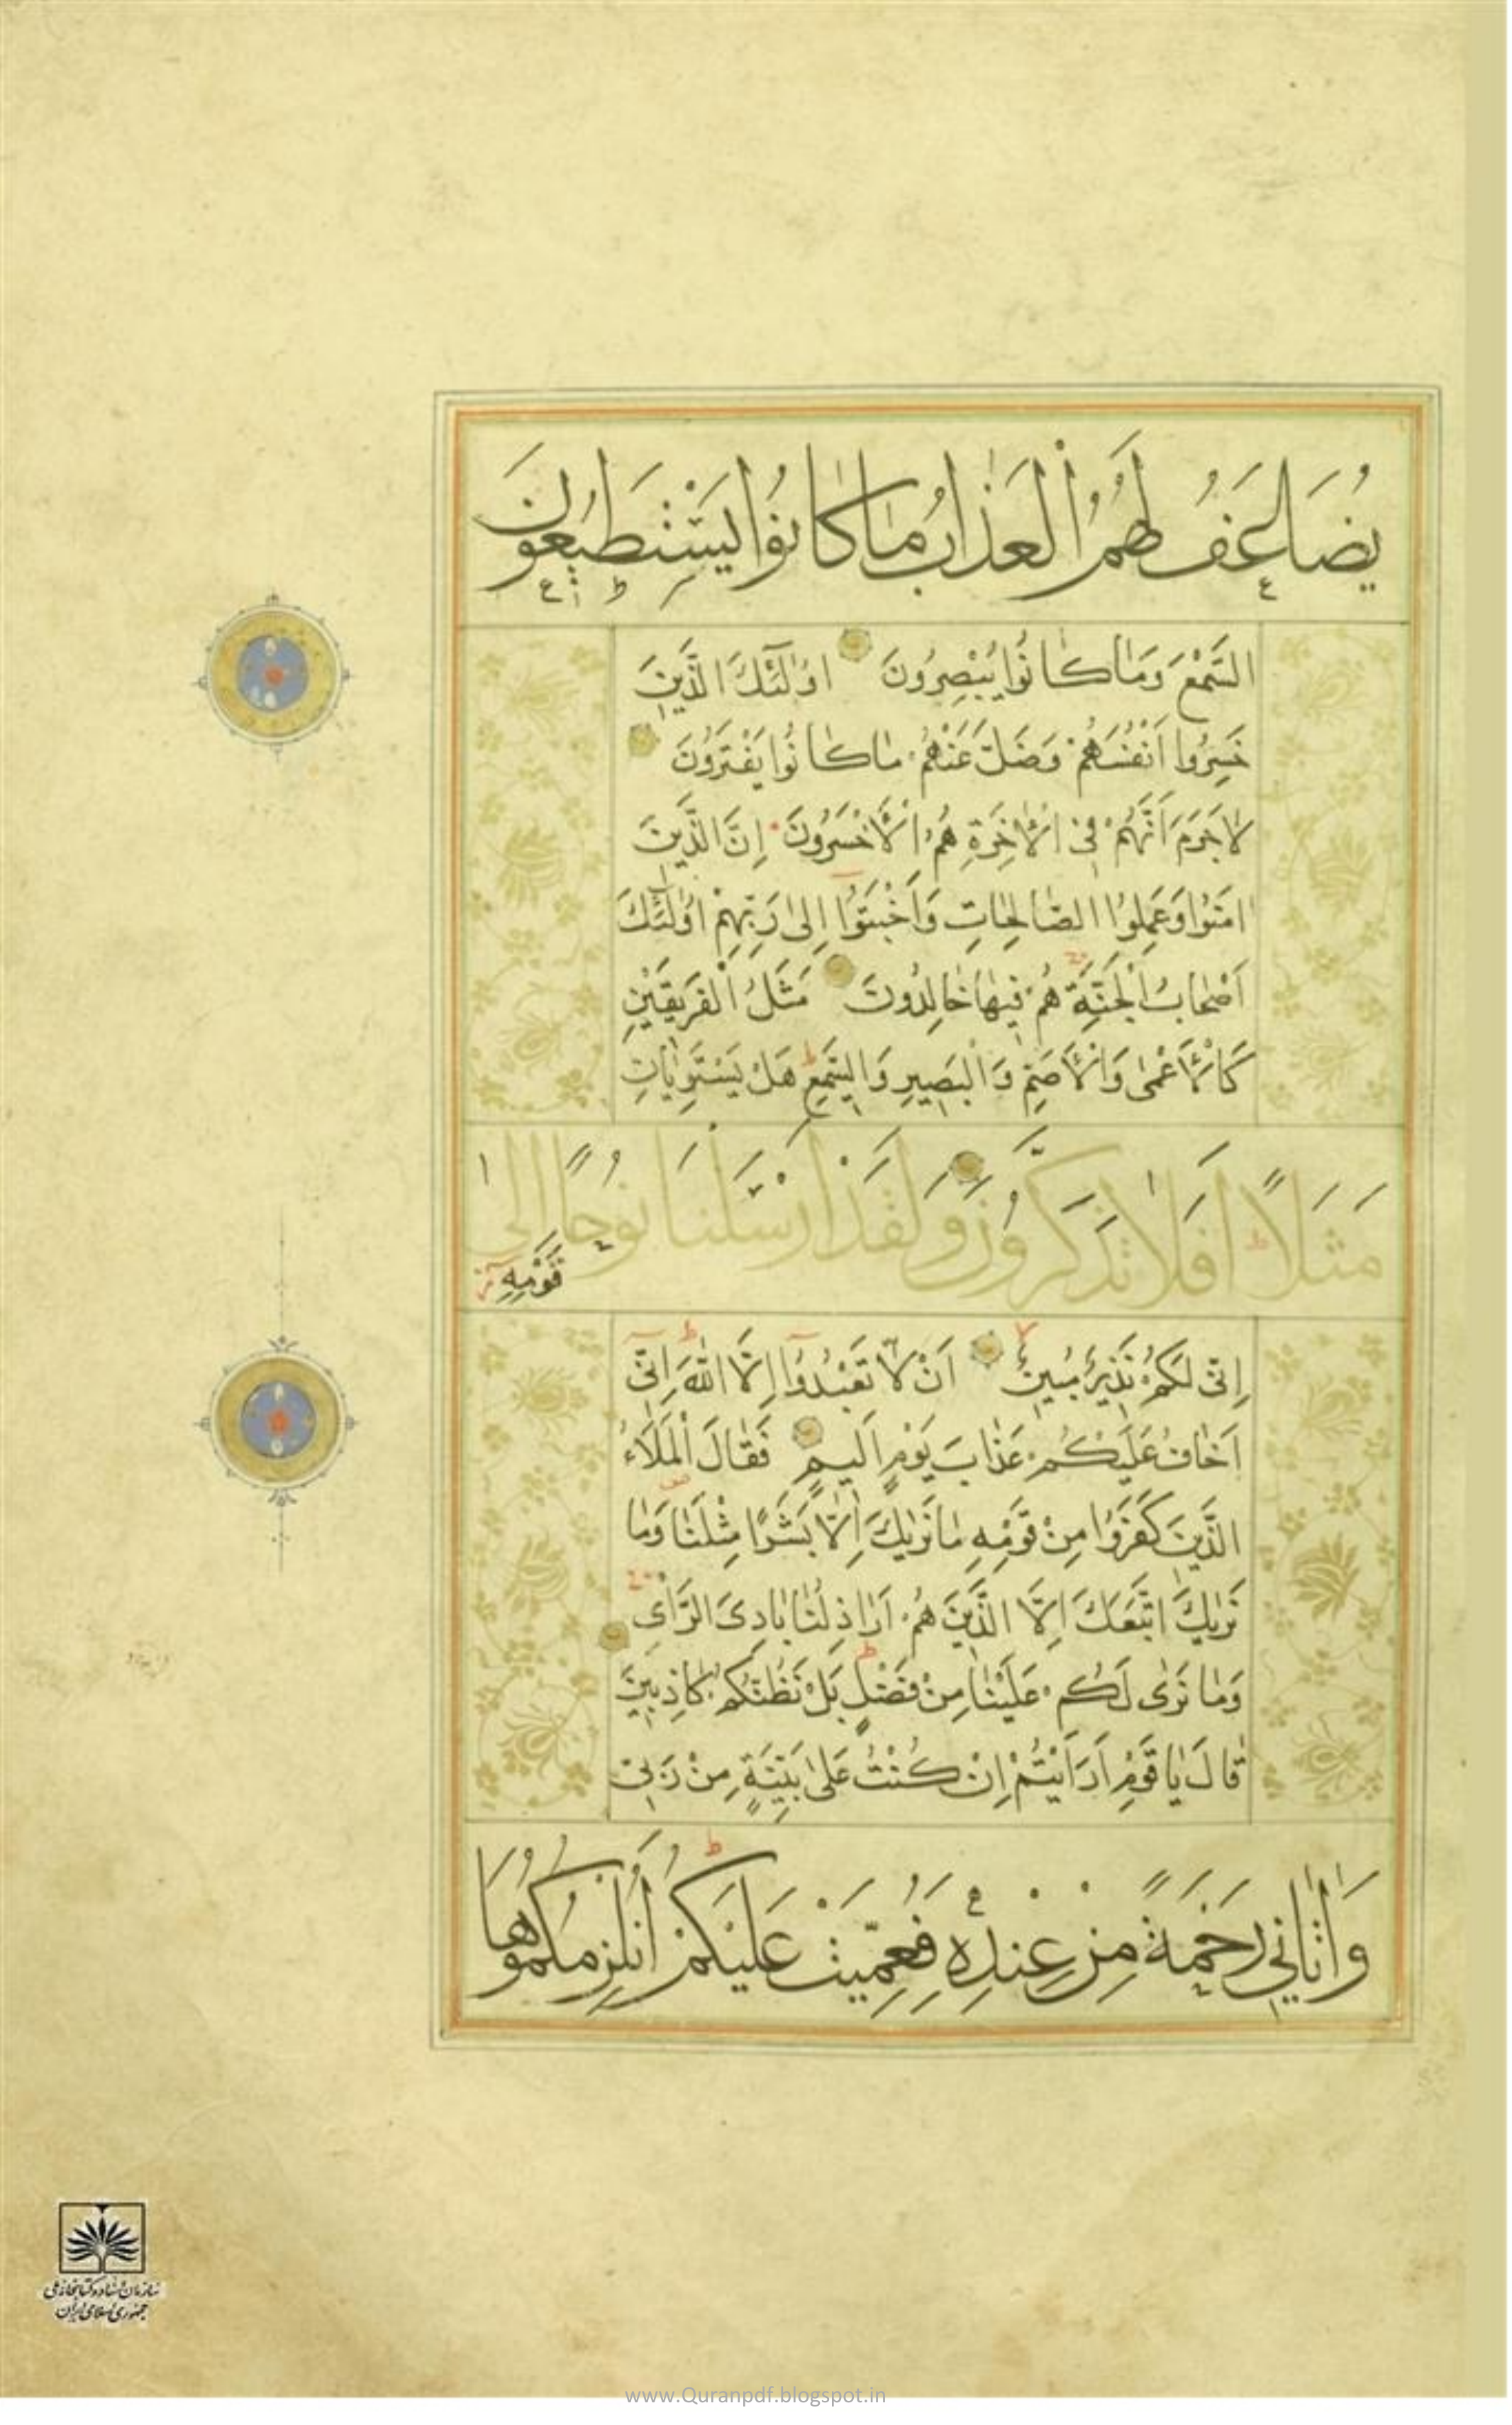 يُضَاعَفُ لَهُمُ الْعَذَابُ مَا كَانُوا يَسْتَطِيعُونَ
السَّمْعَ وَمَا كَانُوا يُبْصِرُونَ اُولٰئِكَ الَّذِينَ
خَسِرُوا اَنْفُسَهُمْ وَضَلَّ عَنْهُمْ مَا كَانُوا يَفْتَرُونَ
لَا جَرَمَ اَنَّهُمْ فِى الْاٰخِرَةِ هُمُ الْاَخْسَرُونَ اِنَّ الَّذِينَ
اٰمَنُوا وَعَمِلُوا الصَّالِحَاتِ وَاَخْبَتُوا اِلٰى رَبِّهِمْ اُولٰئِكَ
اَصْحَابُ الْجَنَّةِ هُمْ فِيهَا خَالِدُونَ مَثَلُ الْفَرِيقَيْنِ
كَالْاَعْمٰى وَالْاَصَمِّ وَالْبَصِيرِ وَالسَّمِيعِ هَلْ يَسْتَوِيَانِ
مَثَلًا اَفَلَا تَذَكَّرُونَ وَلَقَدْ اَرْسَلْنَا نُوحًا اِلٰى
قَوْمِهِ
اِنِّى لَكُمْ نَذِيرٌ مُبِينٌ اَنْ لَا تَعْبُدُوا اِلَّا اللّٰهَ اِنِّى
اَخَافُ عَلَيْكُمْ عَذَابَ يَوْمٍ اَلِيمٍ فَقَالَ الْمَلَاءُ
الَّذِينَ كَفَرُوا مِنْ قَوْمِهِ مَا نَرٰيكَ اِلَّا بَشَرًا مِثْلَنَا وَمَا
نَرٰيكَ اتَّبَعَكَ اِلَّا الَّذِينَ هُمْ اَرَاذِلُنَا بَادِىَ الرَّاْىِ
وَمَا نَرٰى لَكُمْ عَلَيْنَا مِنْ فَضْلٍ بَلْ نَظُنُّكُمْ كَاذِبِينَ
قَالَ يَا قَوْمِ اَرَاَيْتُمْ اِنْ كُنْتُ عَلٰى بَيِّنَةٍ مِنْ رَبِّى
وَاٰتَانِي رَحْمَةً مِنْ عِنْدِهِ فَعُمِّيَتْ عَلَيْكُمْ اَنُلْزِمُكُمُوهَا
سازمان اسناد و کتابخانه ملی
جمهوری اسلامی ایران
www.Quranpdf.blogspot.in